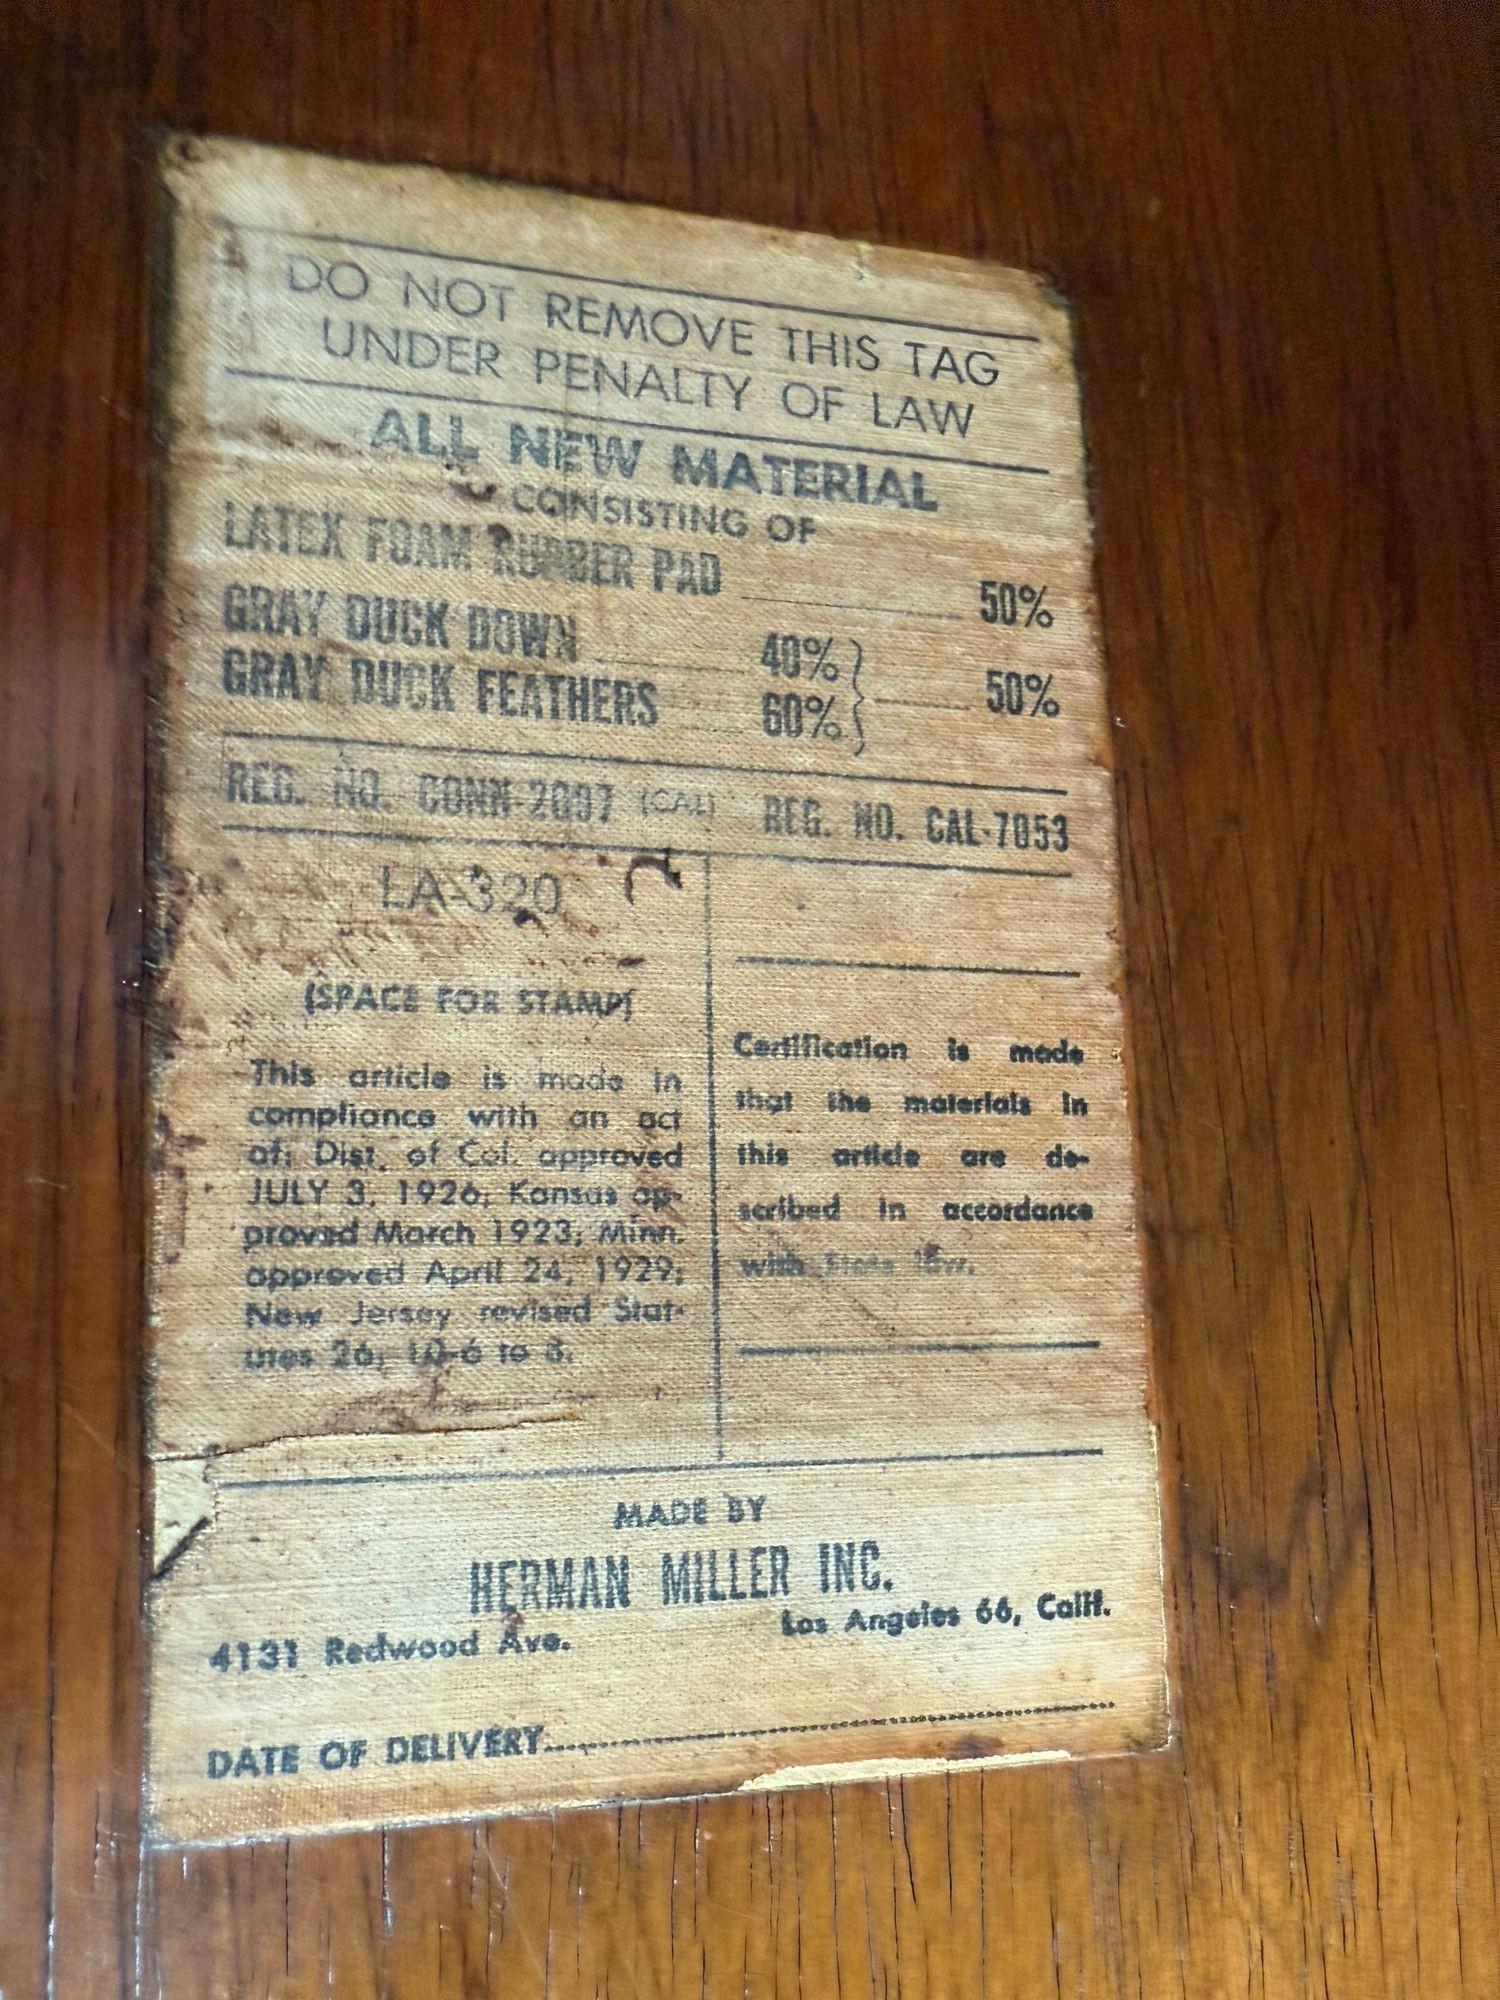 DO NOT REMOVE THIS TAG
UNDER PENALTY OF LAW
ALL NEW MATERIAL
CONSISTING OF
LATEX FOAM RUBBER PAD 50%
GRAY DUCK DOWN 40% } 50%
GRAY DUCK FEATHERS 60%
REG. NO. CONN-2007 (CAL) REG. NO. CAL-7053
LA-320
(SPACE FOR STAMP)
This article is made in
compliance with an act
of: Dist. of Col. approved
JULY 3, 1926; Kansas ap-
proved March 1923; Minn.
approved April 24, 1929;
New Jersey revised Stat-
utes 26; 10-6 to 8.
Certification is made
that the materials in
this article are de-
scribed in accordance
with State law.
MADE BY
HERMAN MILLER INC.
4131 Redwood Ave. Los Angeles 66, Calif.
DATE OF DELIVERY